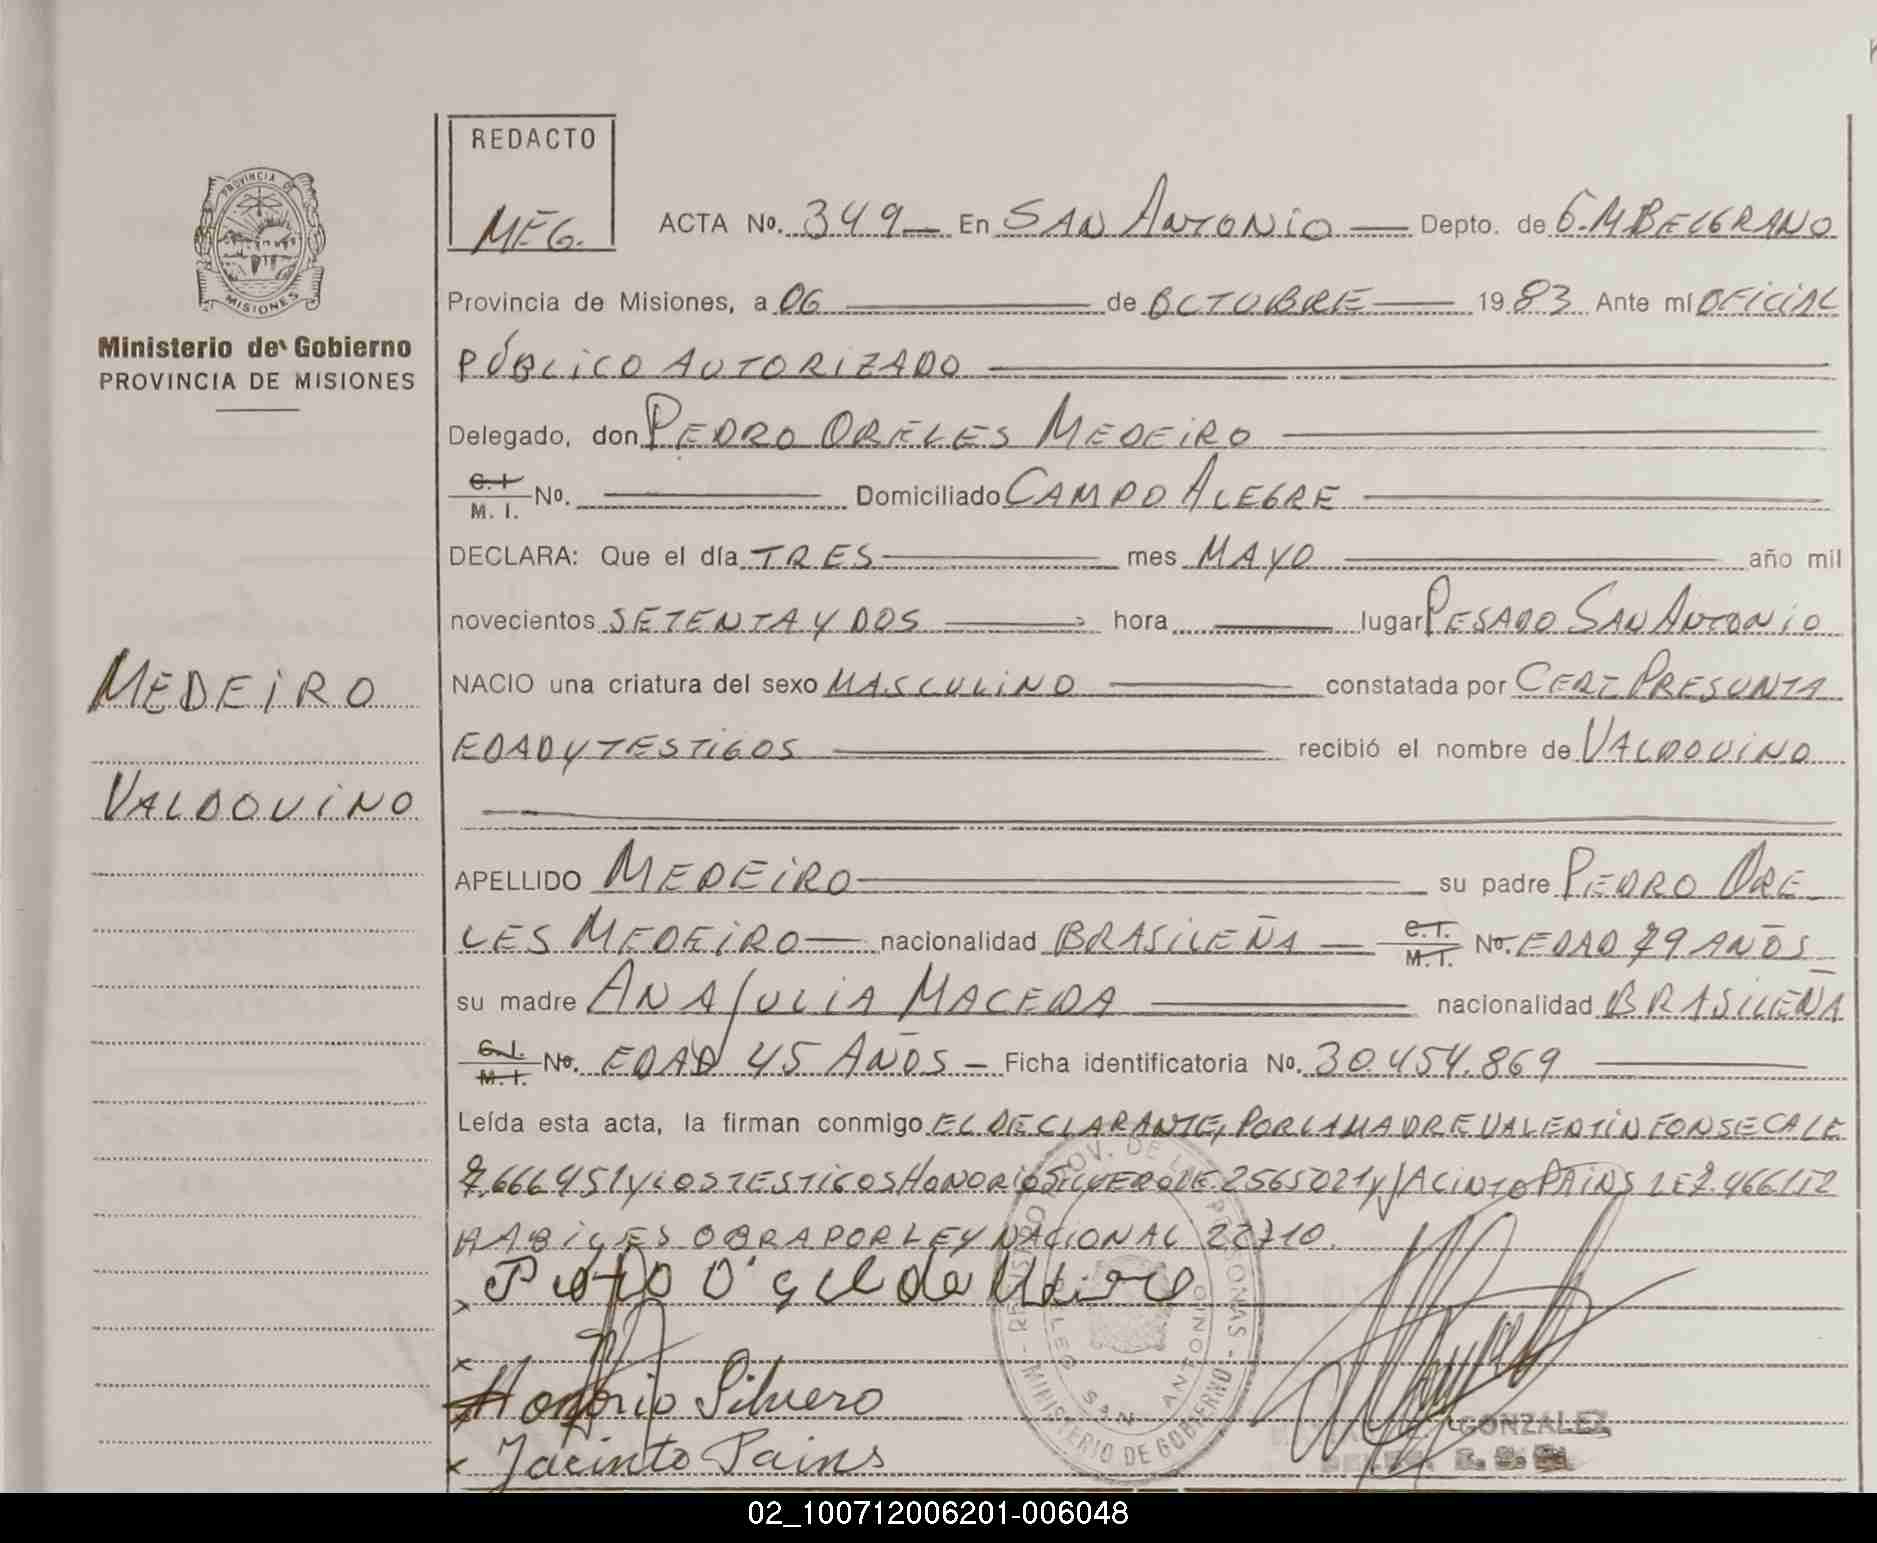 REDACTO
MEG.
PROVINCIA DE
MISIONES
Ministerio de Gobierno
PROVINCIA DE MISIONES
ACTA No. 349 En SAN ANTONIO Depto. de G.M BELGRANO
Provincia de Misiones, a 06 de OCTUBRE 1983 Ante mí OFICIAL
PÚBLICO AUTORIZADO
Delegado, don PEDRO ORELES MEDEIRO
C.I
M. I. No. Domiciliado CAMPO ALEGRE
DECLARA: Que el día TRES mes MAYO año mil
novecientos SETENTA Y DOS hora lugar PESADO SAN ANTONIO
MEDEIRO
NACIO una criatura del sexo MASCULINO constatada por CERT PRESUNTA
EDAD Y TESTIGOS recibió el nombre de VALDOVINO
VALDOVINO
APELLIDO MEDEIRO su padre PEDRO ORE
LES MEDEIRO nacionalidad BRASILEÑA C.I. M.I. No. EDAD 79 AÑOS
su madre ANA JULIA MACEDA nacionalidad BRASILEÑA
C.I. M.I. No. EDAD 45 AÑOS - Ficha identificatoria No. 30.454.869
Leída esta acta, la firman conmigo EL DECLARANTE, POR LA MADRE VALENTÍN FONSECA LE
7.666451 Y LOS TESTIGOS HONORIO SILVERO LE 2565021 Y JACINTO PAINS LE 7.466112
HABILES OBRA POR LEY NACIONAL 22710.
Honorio Silvero
Jacinto Pains
MINISTERIO DE GOBIERNO
SAN ANTONIO
GONZALEZ
02_100712006201-006048